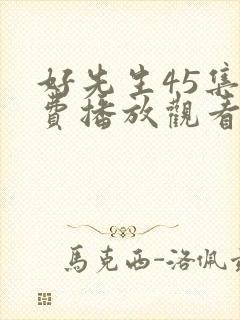 好先生45集
費播放觀看
馬克西-洛佩